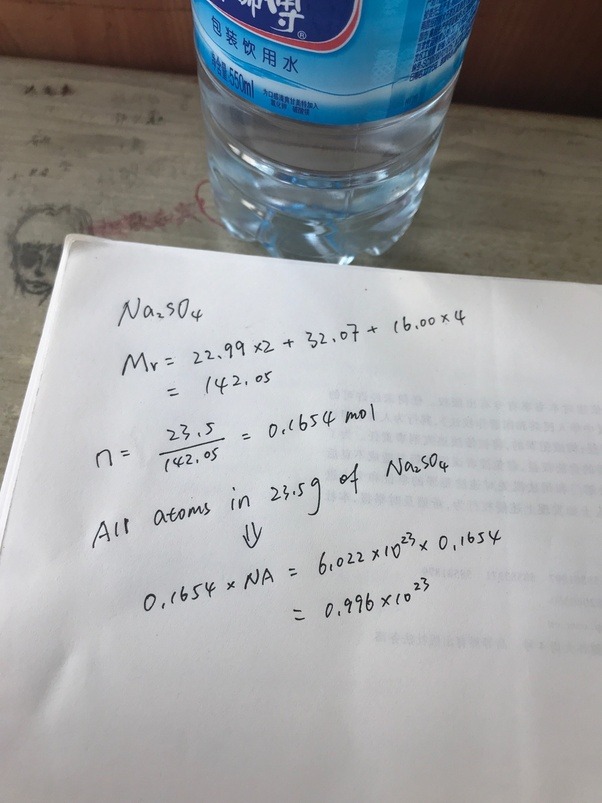 包装饮用水
净含量:550ml
Na₂SO₄
Mr = 22.99 × 2 + 32.07 + 16.00 × 4
= 142.05
n = 23.5 / 142.05 = 0.1654 mol
All atoms in 23.5g of Na₂SO₄
⇓
0.1654 × NA = 6.022 × 10²³ × 0.1654
= 0.996 × 10²³